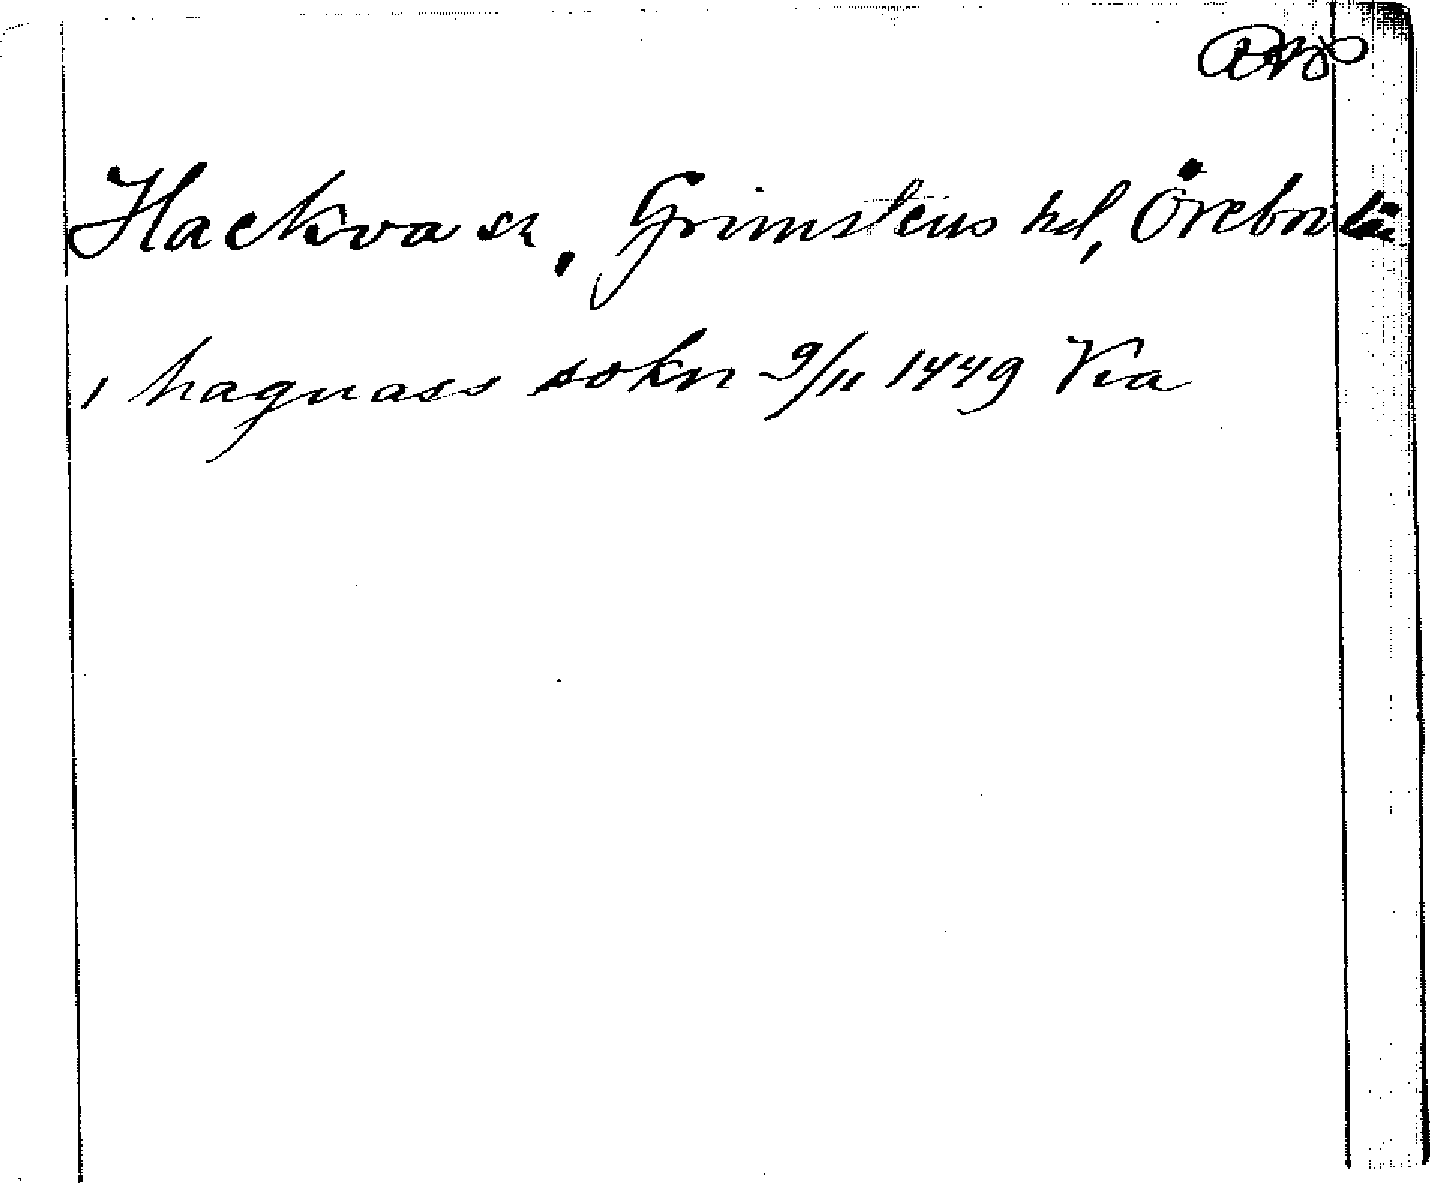 Hackva sn, Grimstens hd, Örebro län
i haguass sokn 9/11 1449 Via